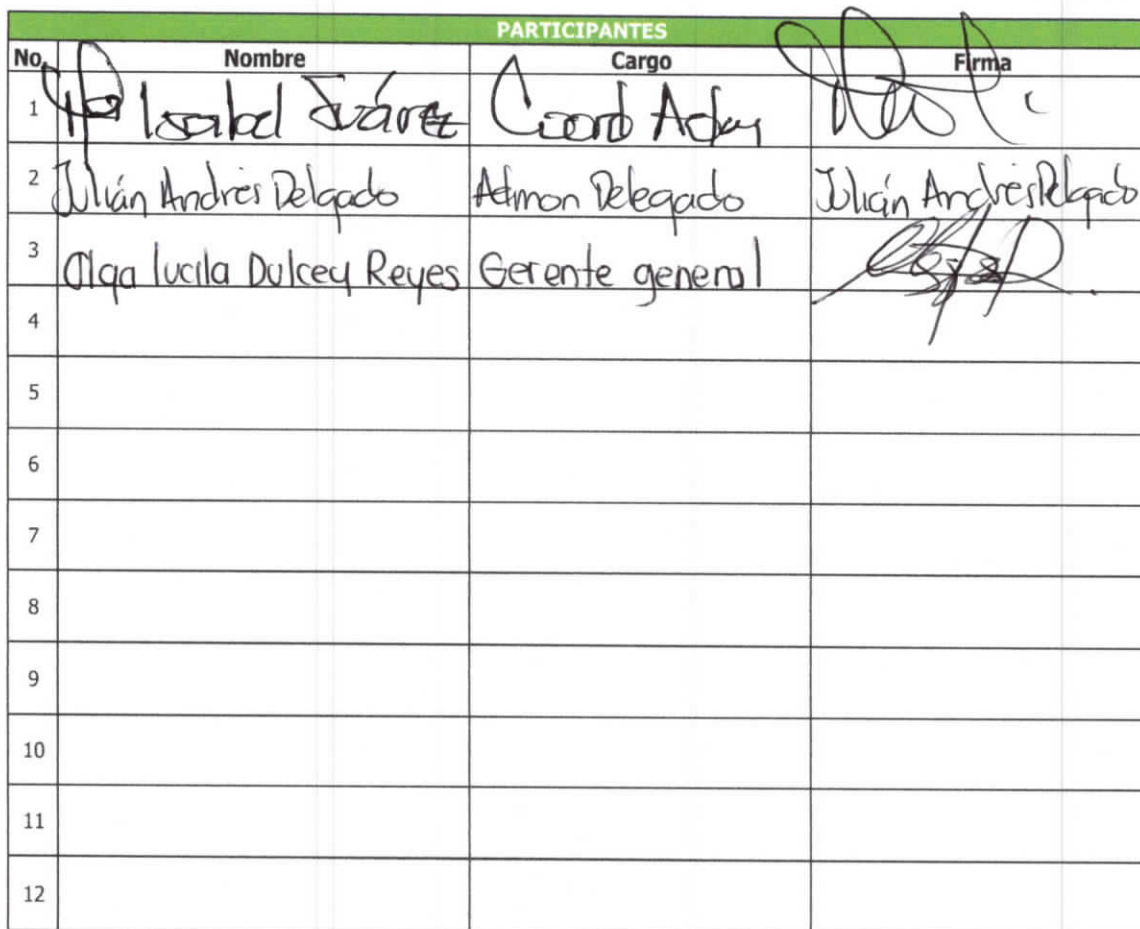 PARTICIPANTES
No. Nombre Cargo Firma
1 Isabel Suárez Coord
2 Julián Andrés Delgado Admon Delegado Julián Andrés Delgado
3 Olga lucila Dulcey Reyes Gerente general
4
5
6
7
8
9
10
11
12